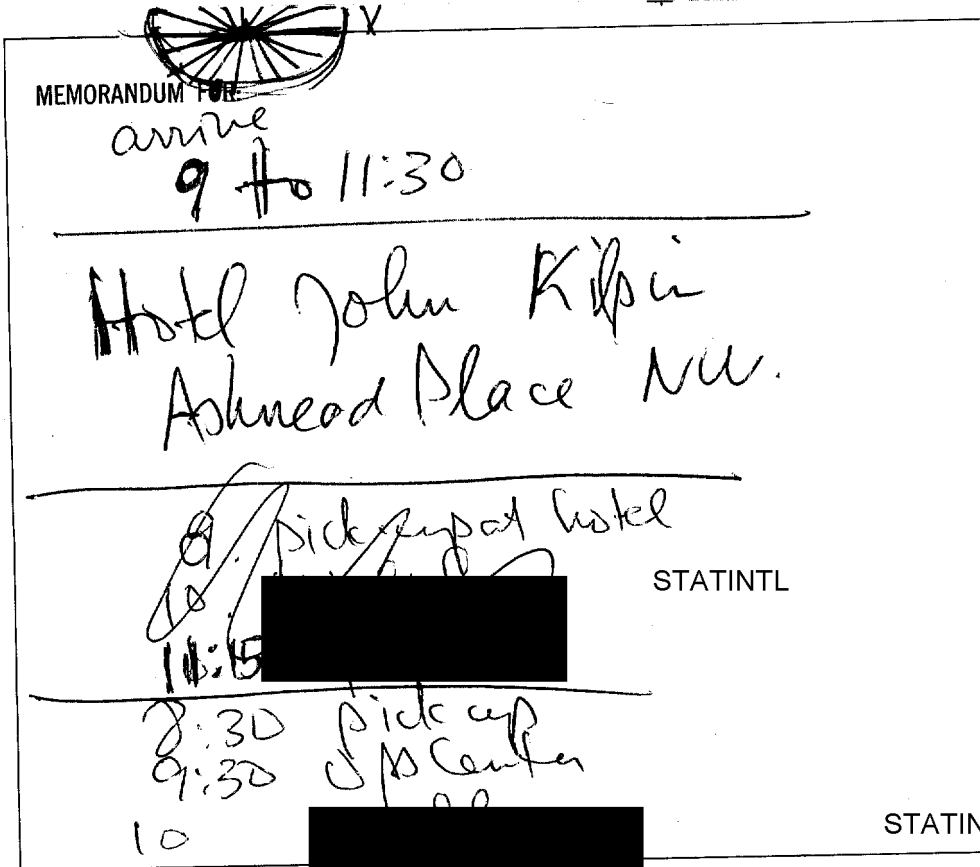 X
MEMORANDUM FOR:
arrive
9 to 11:30
Hotel John Kilpin
Ashmead Place NW.
9. pick up at hotel
10
STATINTL
11:15
8:30 pick up
9:30 Ops Center
10
STATIN